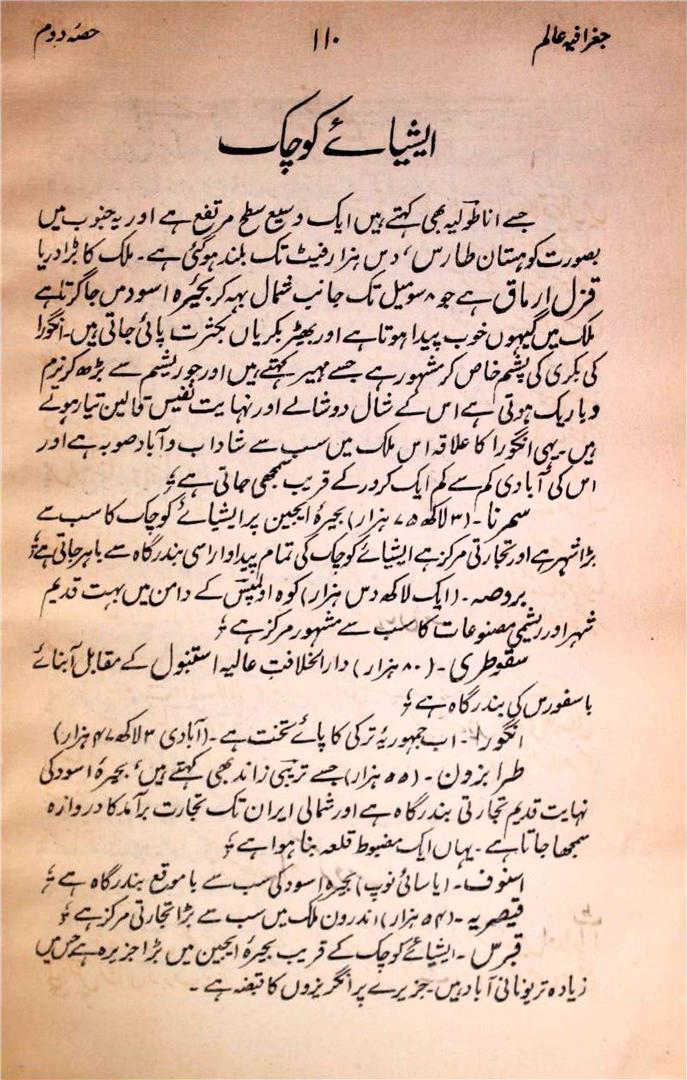 جغرافیہ عالم ۱۱۰ حصہ دوم
ایشیائے کوچک
جسے اناطولیہ بھی کہتے ہیں ایک وسیع سطح مرتفع ہے اور یہ جنوب میں
بصورت کوہستان طارس، دس ہزار فیٹ تک بلند ہوگئی ہے۔ ملک کا بڑا دریا
قزل ارماق ہے جو ۸ سو میل تک جانب شمال بہہ کر بحیرہ اسود میں جا گرتا ہے
ملک میں گیہوں خوب پیدا ہوتا ہے اور بھیڑ بکریاں بکثرت پائی جاتی ہیں۔ انگورا
کی بکری کی پشم خاص کر مشہور ہے جسے مہیر کہتے ہیں اور جو ریشم سے بڑھ کر نرم
و باریک ہوتی ہے اس کے شال دوشالے اور نہایت نفیس قالین تیار ہوتے
ہیں۔ یہی انگورا کا علاقہ اس ملک میں سب سے شاداب و آباد صوبہ ہے اور
اس کی آبادی کم سے کم ایک کرور کے قریب سمجھی جاتی ہے ؛
سمرنا۔ (۳ لاکھ ۷۵ ہزار) بحیرۂ ایجین پر ایشیائے کوچک کا سب سے
بڑا شہر ہے اور تجارتی مرکز ہے ایشیائے کوچک کی تمام پیداوار اسی بندرگاہ سے باہر جاتی ہے ؛
بروصہ۔ (ایک لاکھ دس ہزار) کوہ اولمپس کے دامن میں بہت قدیم
شہر اور ریشمی مصنوعات کا سب سے مشہور مرکز ہے ؛
سقوطری۔ (۸۰ ہزار) دارالخلافت عالیہ استنبول کے مقابل آبنائے
باسفورس کی بندرگاہ ہے ؛
انگورا۔ اب جمہوریۂ ترکی کا پائے تخت ہے۔ (آبادی ۳ لاکھ ۴۷ ہزار)
طرابزون۔ (۵۵ ہزار) جسے تریبی زاند بھی کہتے ہیں، بحیرۂ اسود کی
نہایت قدیم تجارتی بندرگاہ ہے اور شمالی ایران تک تجارت برآمد کا دروازہ
سمجھا جاتا ہے۔ یہاں ایک مضبوط قلعہ بنا ہوا ہے ؛
اسنوف۔ (یا سائی نوپ) بحیرۂ اسود کی سب سے با موقع بندرگاہ ہے ؛
قیصریہ۔ (۵۴ ہزار) اندرون ملک میں سب سے بڑا تجارتی مرکز ہے ؛
قبرس۔ ایشیائے کوچک کے قریب بحیرۂ ایجین میں بڑا جزیرہ ہے جس میں
زیادہ تر یونانی آباد ہیں۔ جزیرے پر انگریزوں کا قبضہ ہے۔